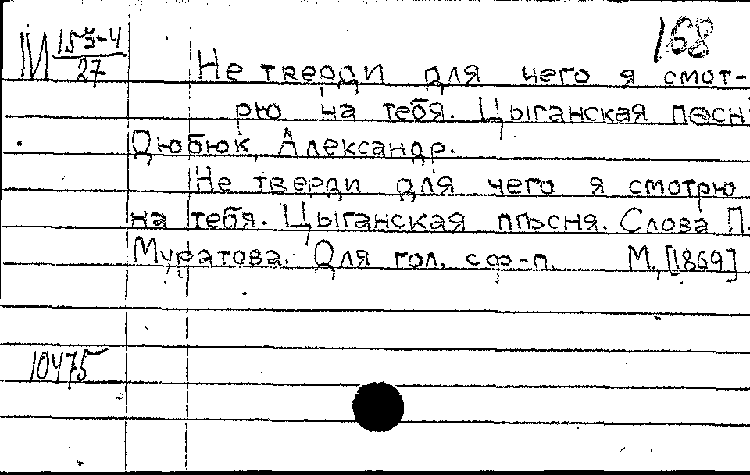 168
М 153-4/27
Не тверди для чего я смот-
рю на тебя. Цыганская песн
Дюбюк, Александр.
Не тверди для чего я смотрю
на тебя. Цыганская пѣсня. Слова П.
Муратова. Для гол. с ф-п. М, [1869]
10475